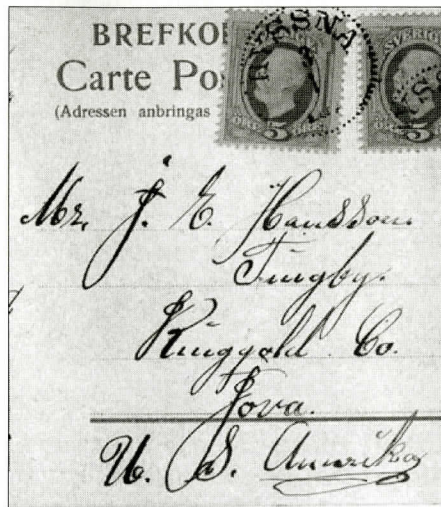 BREFKO
Carte Po
(Adressen anbringas
SVERIGE
ÖRE 5 ÖRE
5
Mr. J. E. Hansson.
Tingby.
Ringgold Co.
Iova.
U. S. Amerika